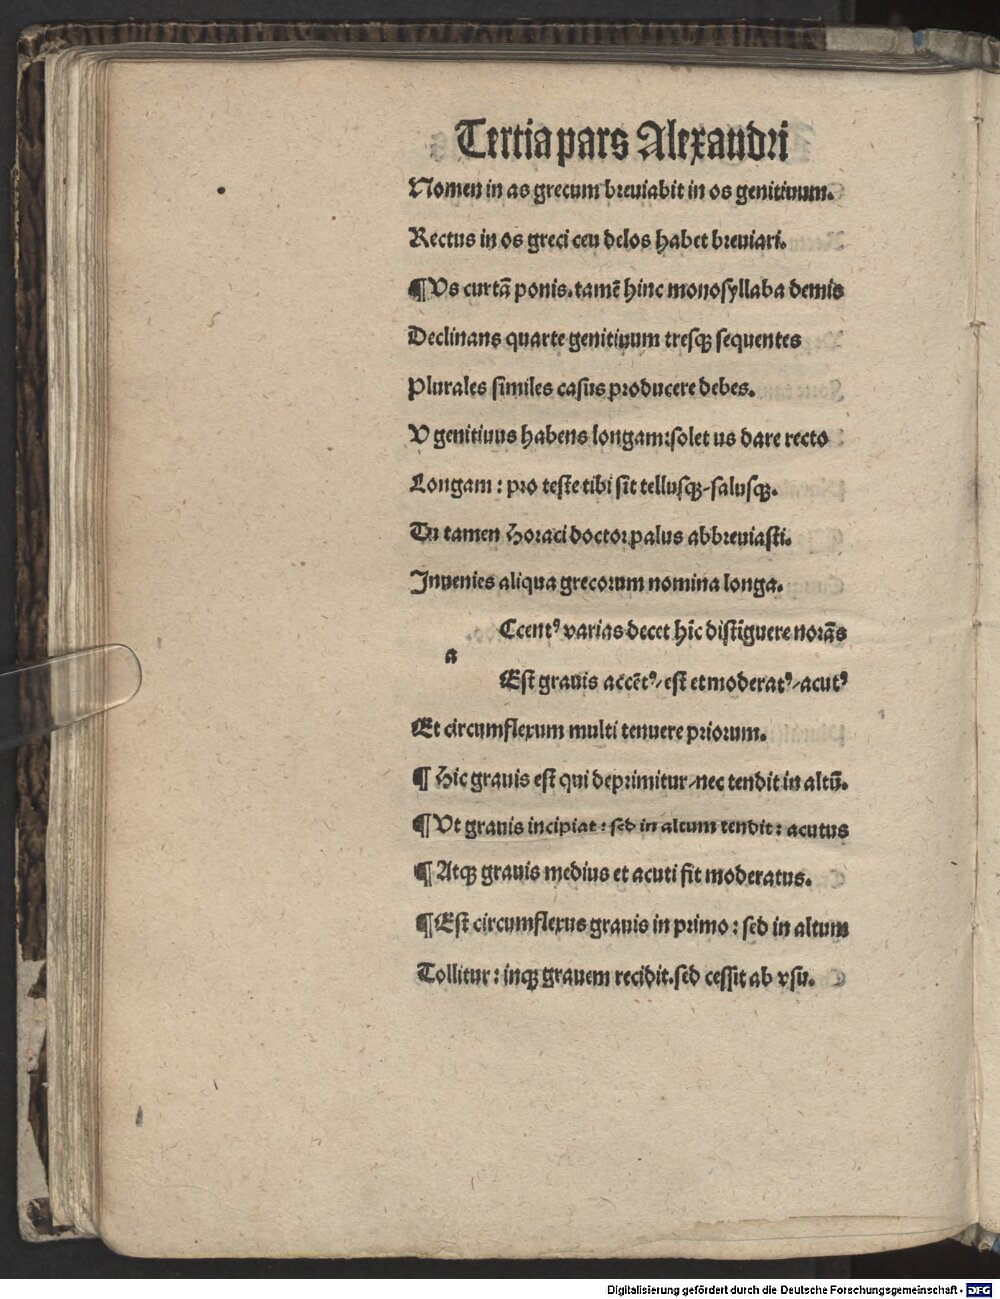 Tertia pars Alexandri
Nomen in as grecum breuiabit in os genitiuum.
Rectus in os greci ceu delos habet breuiari.
¶ Vs curtā ponis. tamē hinc monosyllaba demis
Declinans quarte genitiuum tresqȝ sequentes
Plurales similes casus producere debes.
V genitiuus habens longam: solet us dare recto
Longam: pro teste tibi sit tellusqȝ/salusqȝ.
Tu tamen Horaci doctor palus abbreuiasti.
Inuenies aliqua grecorum nomina longa.
Ccentꝰ varias decet hīc distīguere norās
a
Est grauis accētꝰ/ est et moderatꝰ/ acutꝰ
Et circumflexum multi tenuere priorum.
¶ Hic grauis est qui deprimitur/ nec tendit in altū.
¶ Vt grauis incipiat: sed in altum tendit: acutus
¶ Atqȝ grauis medius et acuti fit moderatus.
¶ Est circumflexus grauis in primo: sed in altum
Tollitur: inqȝ grauem recidit. sed cessit ab vsu.
Digitalisierung gefördert durch die Deutsche Forschungsgemeinschaft - DFG